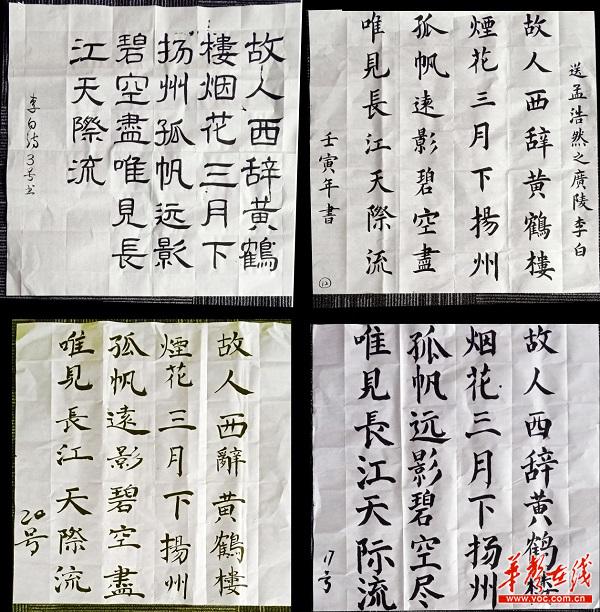 故人西辞黄鶴
樓烟花三月下
扬州孤帆远影
碧空盡唯見長
江天際流
李白诗3号书
送孟浩然之廣陵李白
故人西辞黄鶴樓
煙花三月下揚州
孤帆遠影碧空盡
唯見長江天際流
壬寅年書
12
故人西辭黄鶴樓
煙花三月下揚州
孤帆遠影碧空盡
唯見長江天際流
20号
故人西辞黄鶴楼
烟花三月下扬州
孤帆远影碧空尽
唯見長江天际流
17号
华声在线
www.voc.com.cn